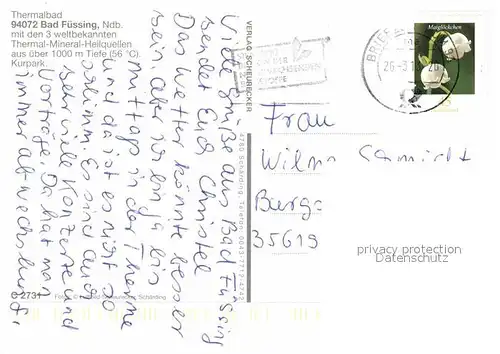 Thermalbad
94072 Bad Füssing, Ndb.
mit den 3 weltbekannten
Thermal-Mineral-Heilquellen
aus über 1000 m Tiefe (56 °C).
Kurpark.
Viele Grüße aus Bad Füssing
sendet Euch Christel
Das Wetter könnte besser
sein, aber ich bin ja bis
mittags in der Therme
und da ist es nicht so
schlimm. Es sind auch
sehr viele Konzerte und
Vorträge. Da hat man
immer abwechslung.
C 2731
VERLAG SCHEURECKER
4780 Schärding, Telefon
BRIEF
26.-3.1
Maiglöckchen
Frau
Wilma Schmidt
Burg
35619
privacy protection
Datenschutz